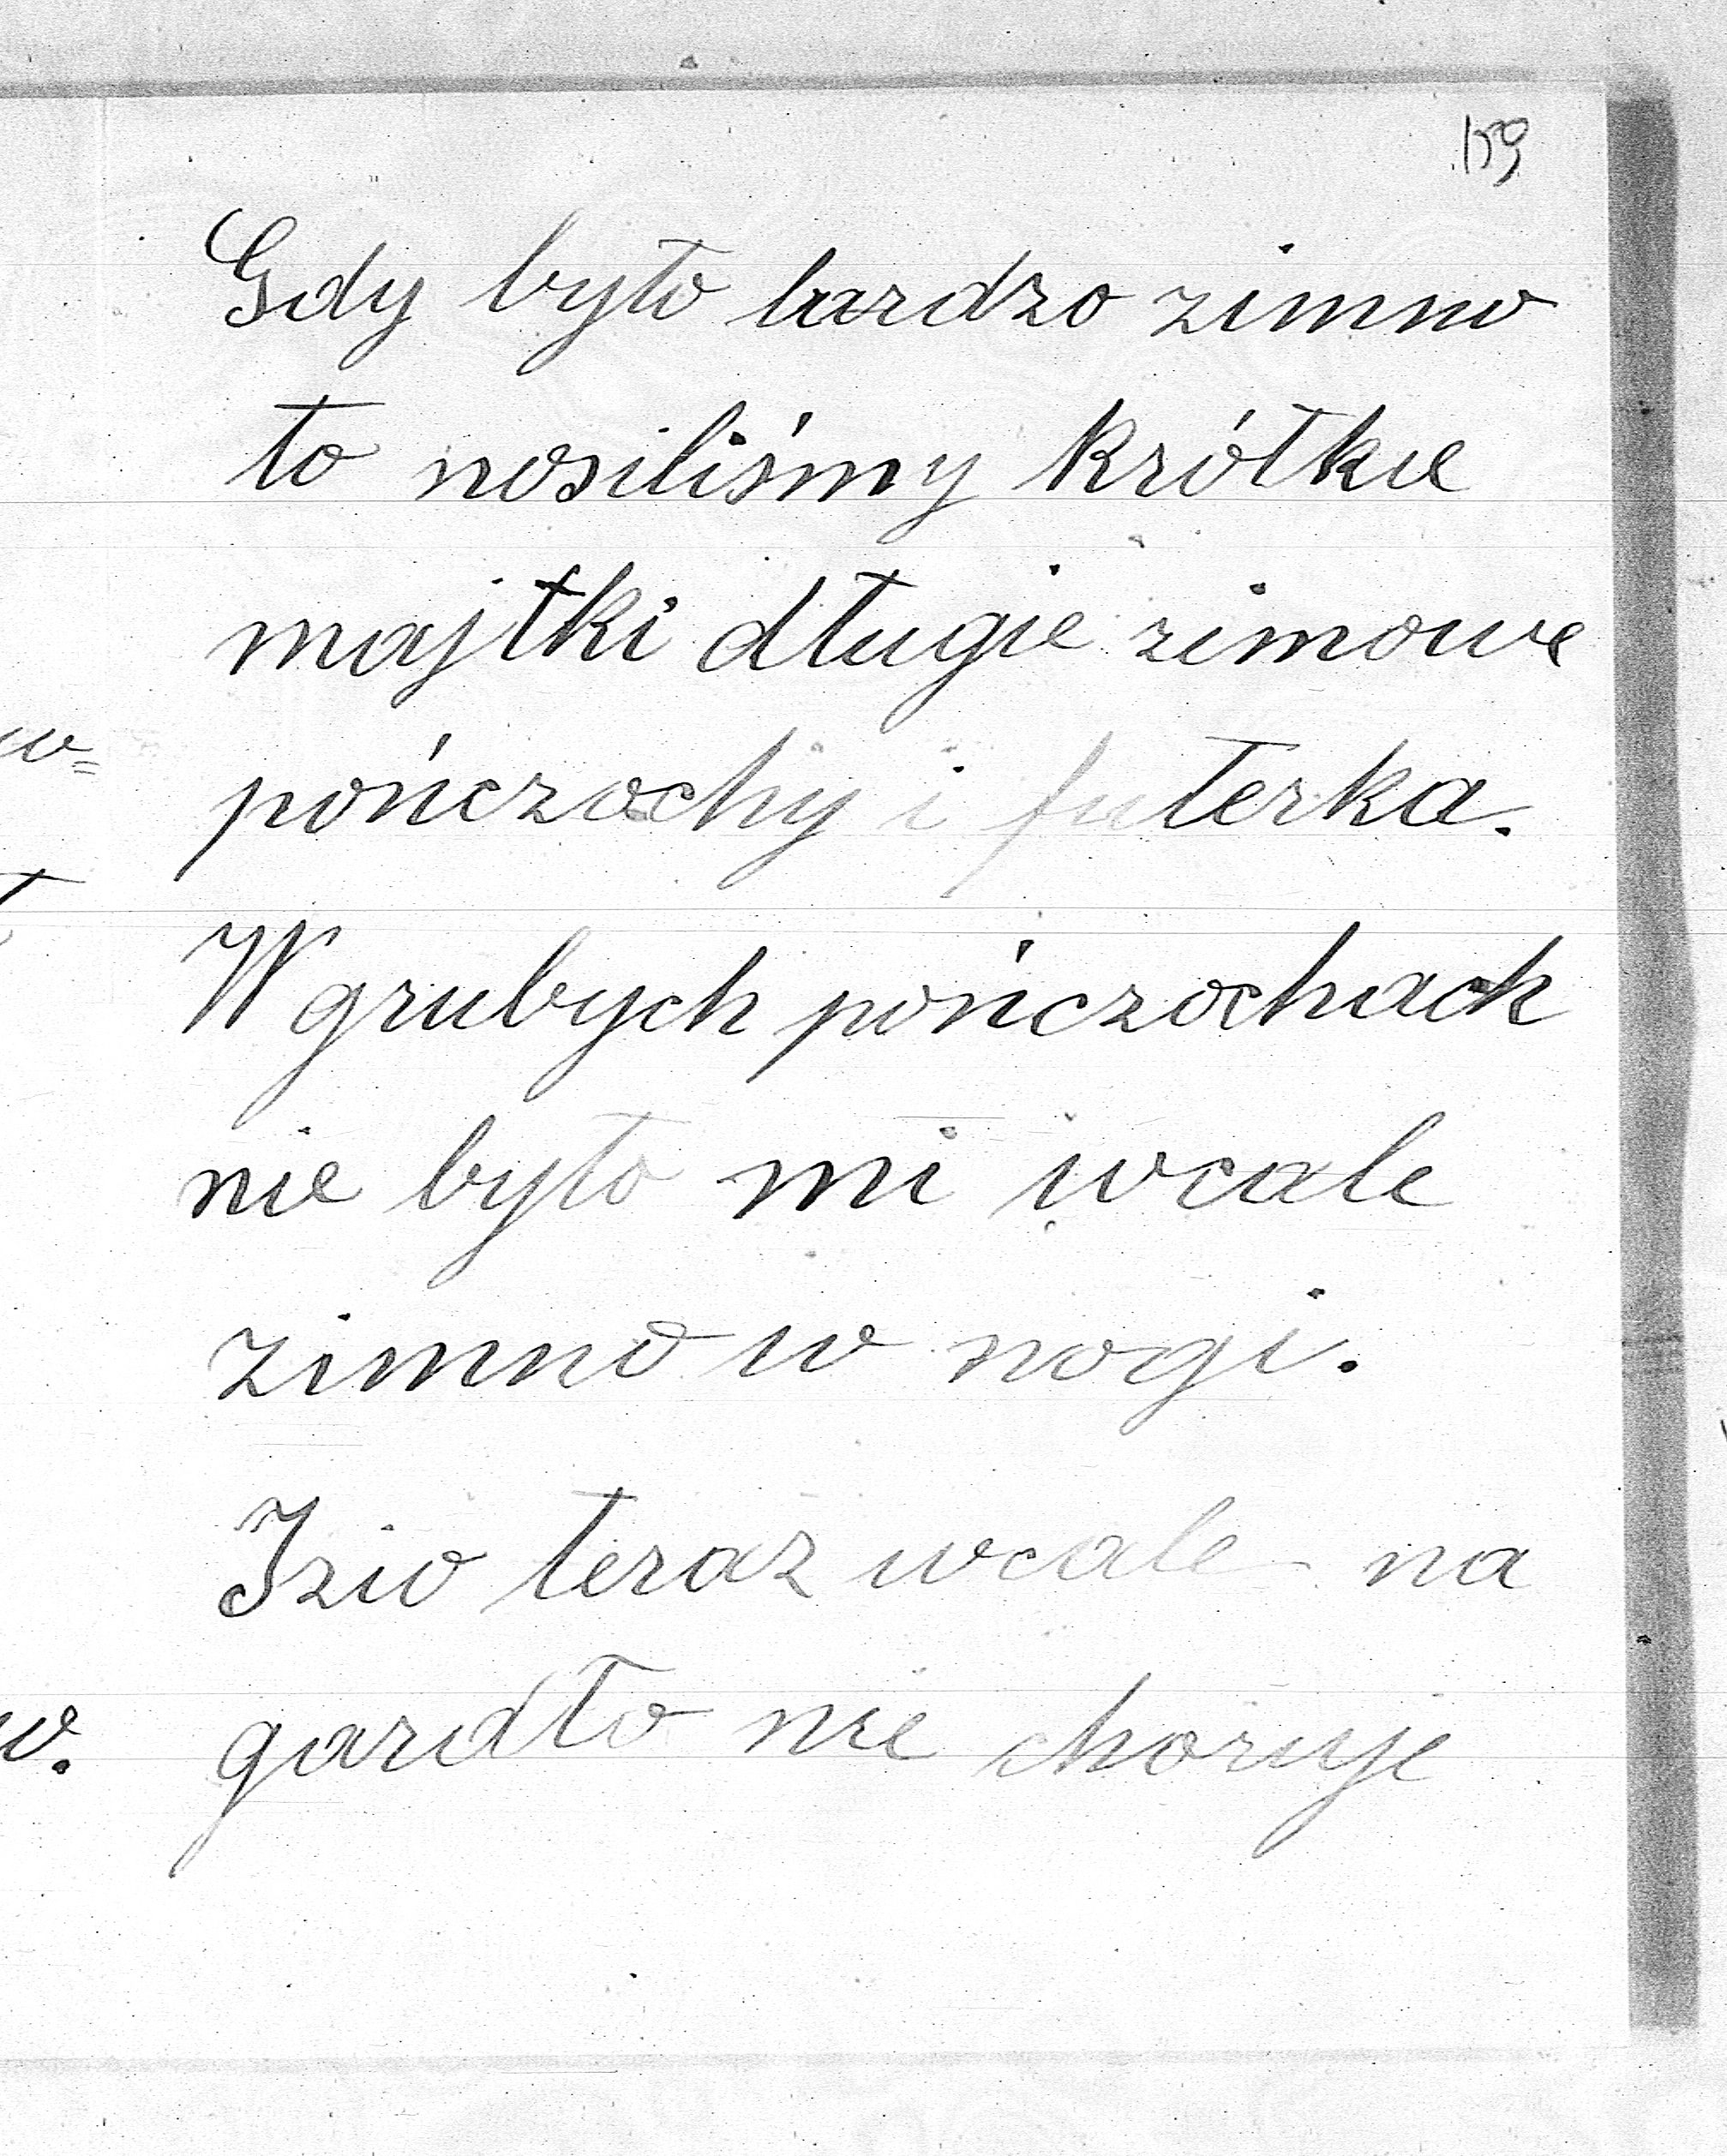 159
Gdy było bardzo zimno
to nosiliśmy krótkie
majtki długie zimowe
pończochy i futerka.
W grubych pończochach
nie było mi wcale
zimno w nogi.
Izio teraz wcale na
gardło nie choruje